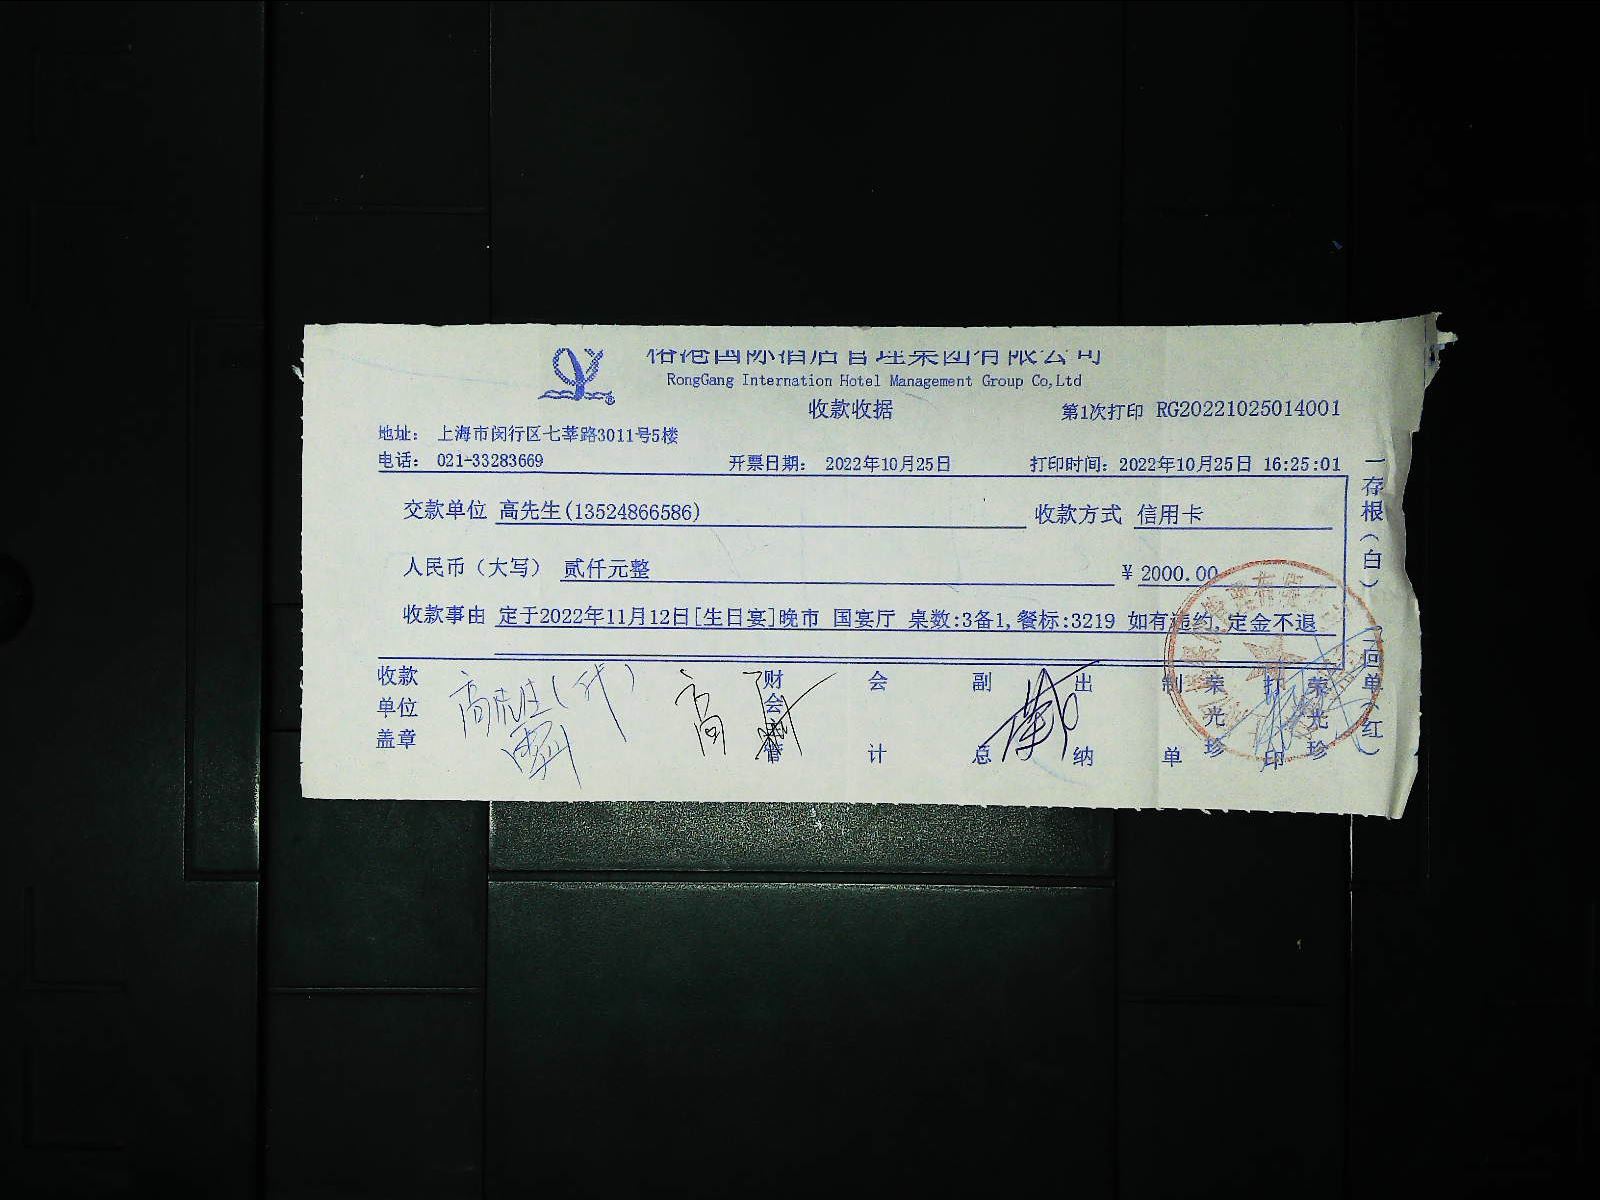 榕港国际酒店管理集团有限公司
RongGang Internation Hotel Management Group Co,Ltd
收款收据
第1次打印 RG20221025014001
地址: 上海市闵行区七莘路3011号5楼
电话: 021-33283669 开票日期: 2022年10月25日 打印时间: 2022年10月25日 16:25:01
交款单位 高先生(13524866586) 收款方式 信用卡
人民币（大写） 贰仟元整 ¥ 2000.00
收款事由 定于2022年11月12日[生日宴]晚市 国宴厅 桌数:3备1,餐标:3219 如有违约,定金不退
收款单位盖章 高先生(代) 高 财会主管 会计 副总 出纳 制单 荣光珍 打印 荣光珍
一存根(白) 二回单(红)